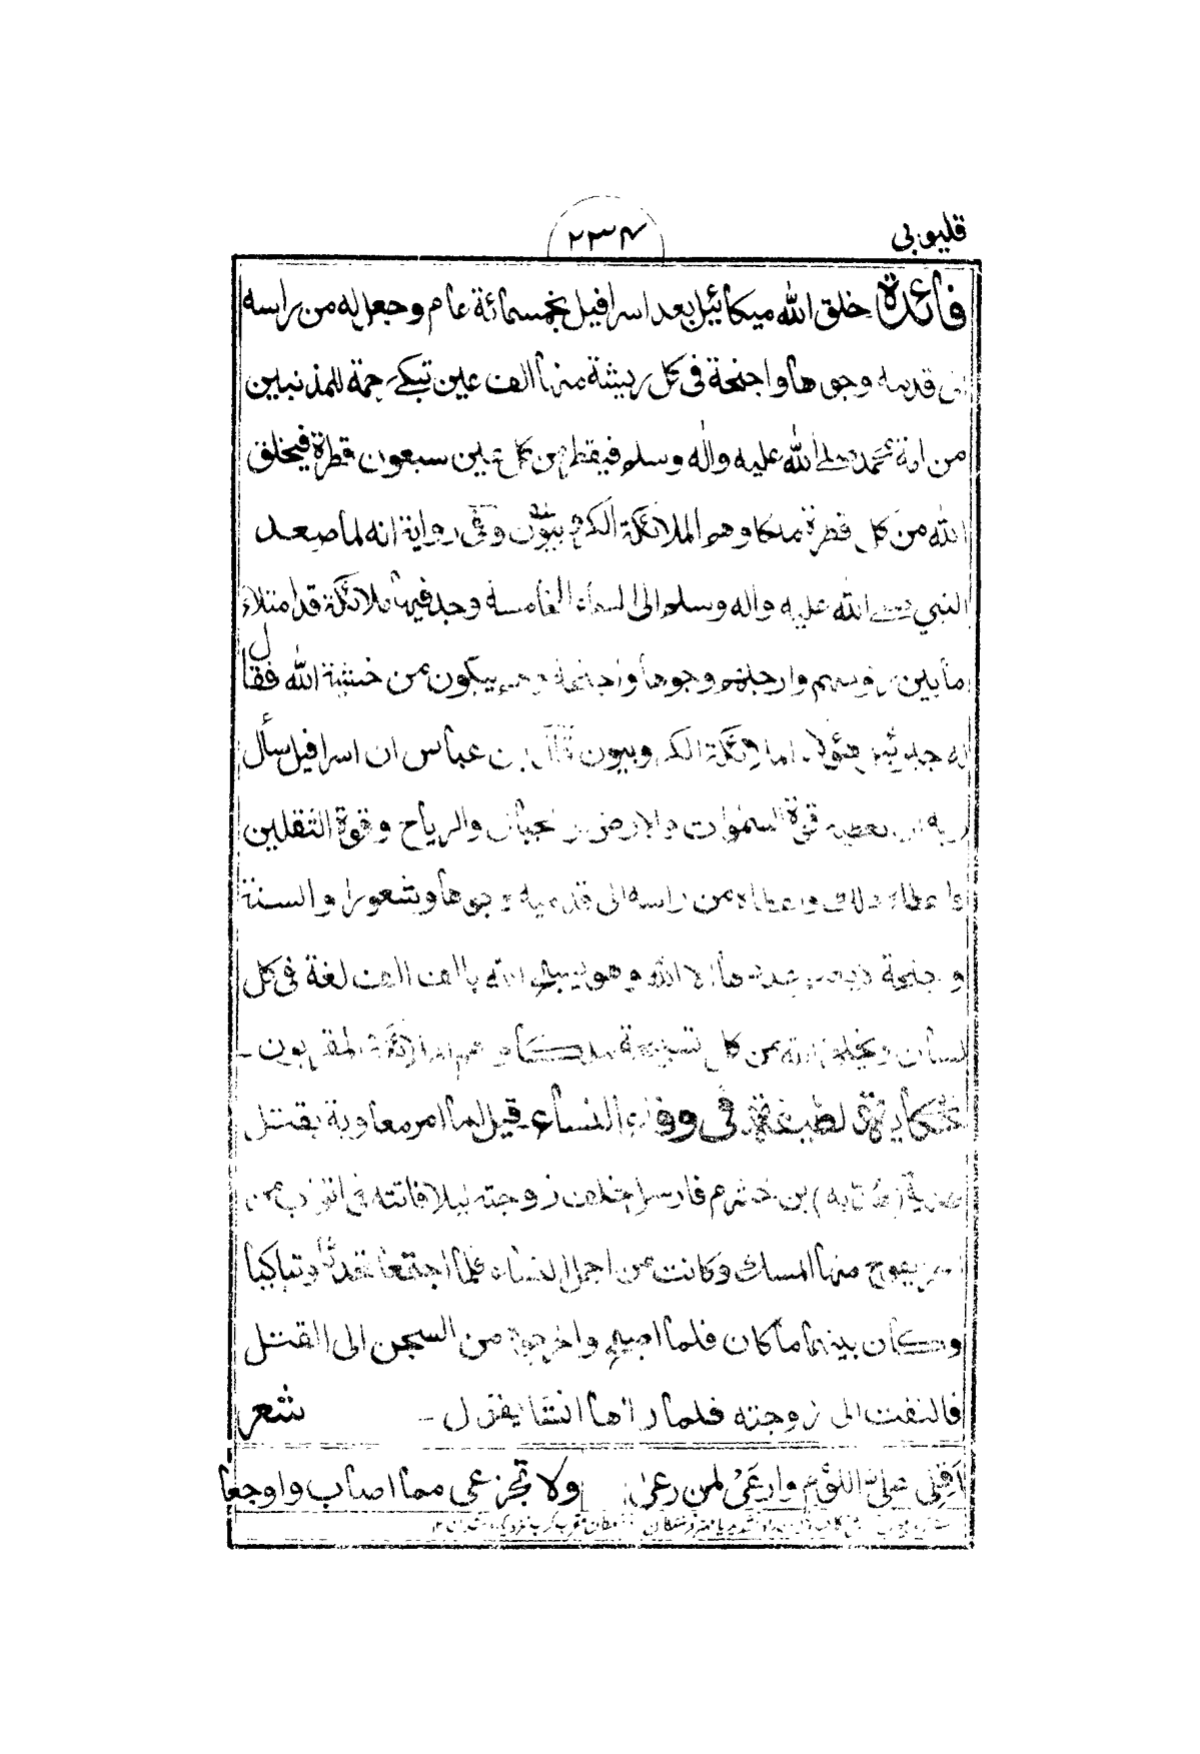 قليوبي
۲۳۴
فائدة خلق الله ميكائيل بعد اسرافيل بخمسمائة عام وجعل له من راسه
الى قدميه وجوها واجنحة فى كل ريشة منها الف عين تبكى رحمة للمذنبين
من امة محمد صلے الله عليه واله وسلم فيقطر من كل عين سبعون قطرة فيخلق
الله من كل قطرة ملكا وهم الملائكة الكروبيون وفى رواية انه لما صعد
النبي صلے الله عليه واله وسلم الى السماء الخامسة وجد فيها ملائكة قد امتلاء
ما بين رؤسهم وارجلهم وجوها واجنحة وهم يبكون من خشية الله فقال
له جبرئيل هؤلاء الملائكة الكروبيون قال ابن عباس ان اسرافيل سأل
ربه ان يعطيه قوة السموات والارض والجبال والرياح وقوة الثقلين
فاعطاه ذلك واعطاه من راسه الى قدميه وجوها وشعورا والسنة
واجنحة الا الله وهو يسبح الله بالف الف لغة فى كل
لسان ويخلق الله من كل تسبيحة ملكا وهم الملائكة المقربون -
حكاية لطيفة فى وفاء النساء قيل لما امر معاوية بقتل
بن خشرم فارسل خلف زوجته ليلا فاتته فى اثواب من
يفوح منها المسك وكانت من اجمل النساء فلما اجتمعا تحدثا وتباكيا
وكان بينهما ما كان فلما اصبح واخرجوه من السجن الى القتل
فالتفت الى زوجته فلما راٰها انتقا يقول - شعر
اَقِلى علىّ اللؤم وارعَىْ لمن رعىٰ ولا تجزعى مما اصاب واوجعا